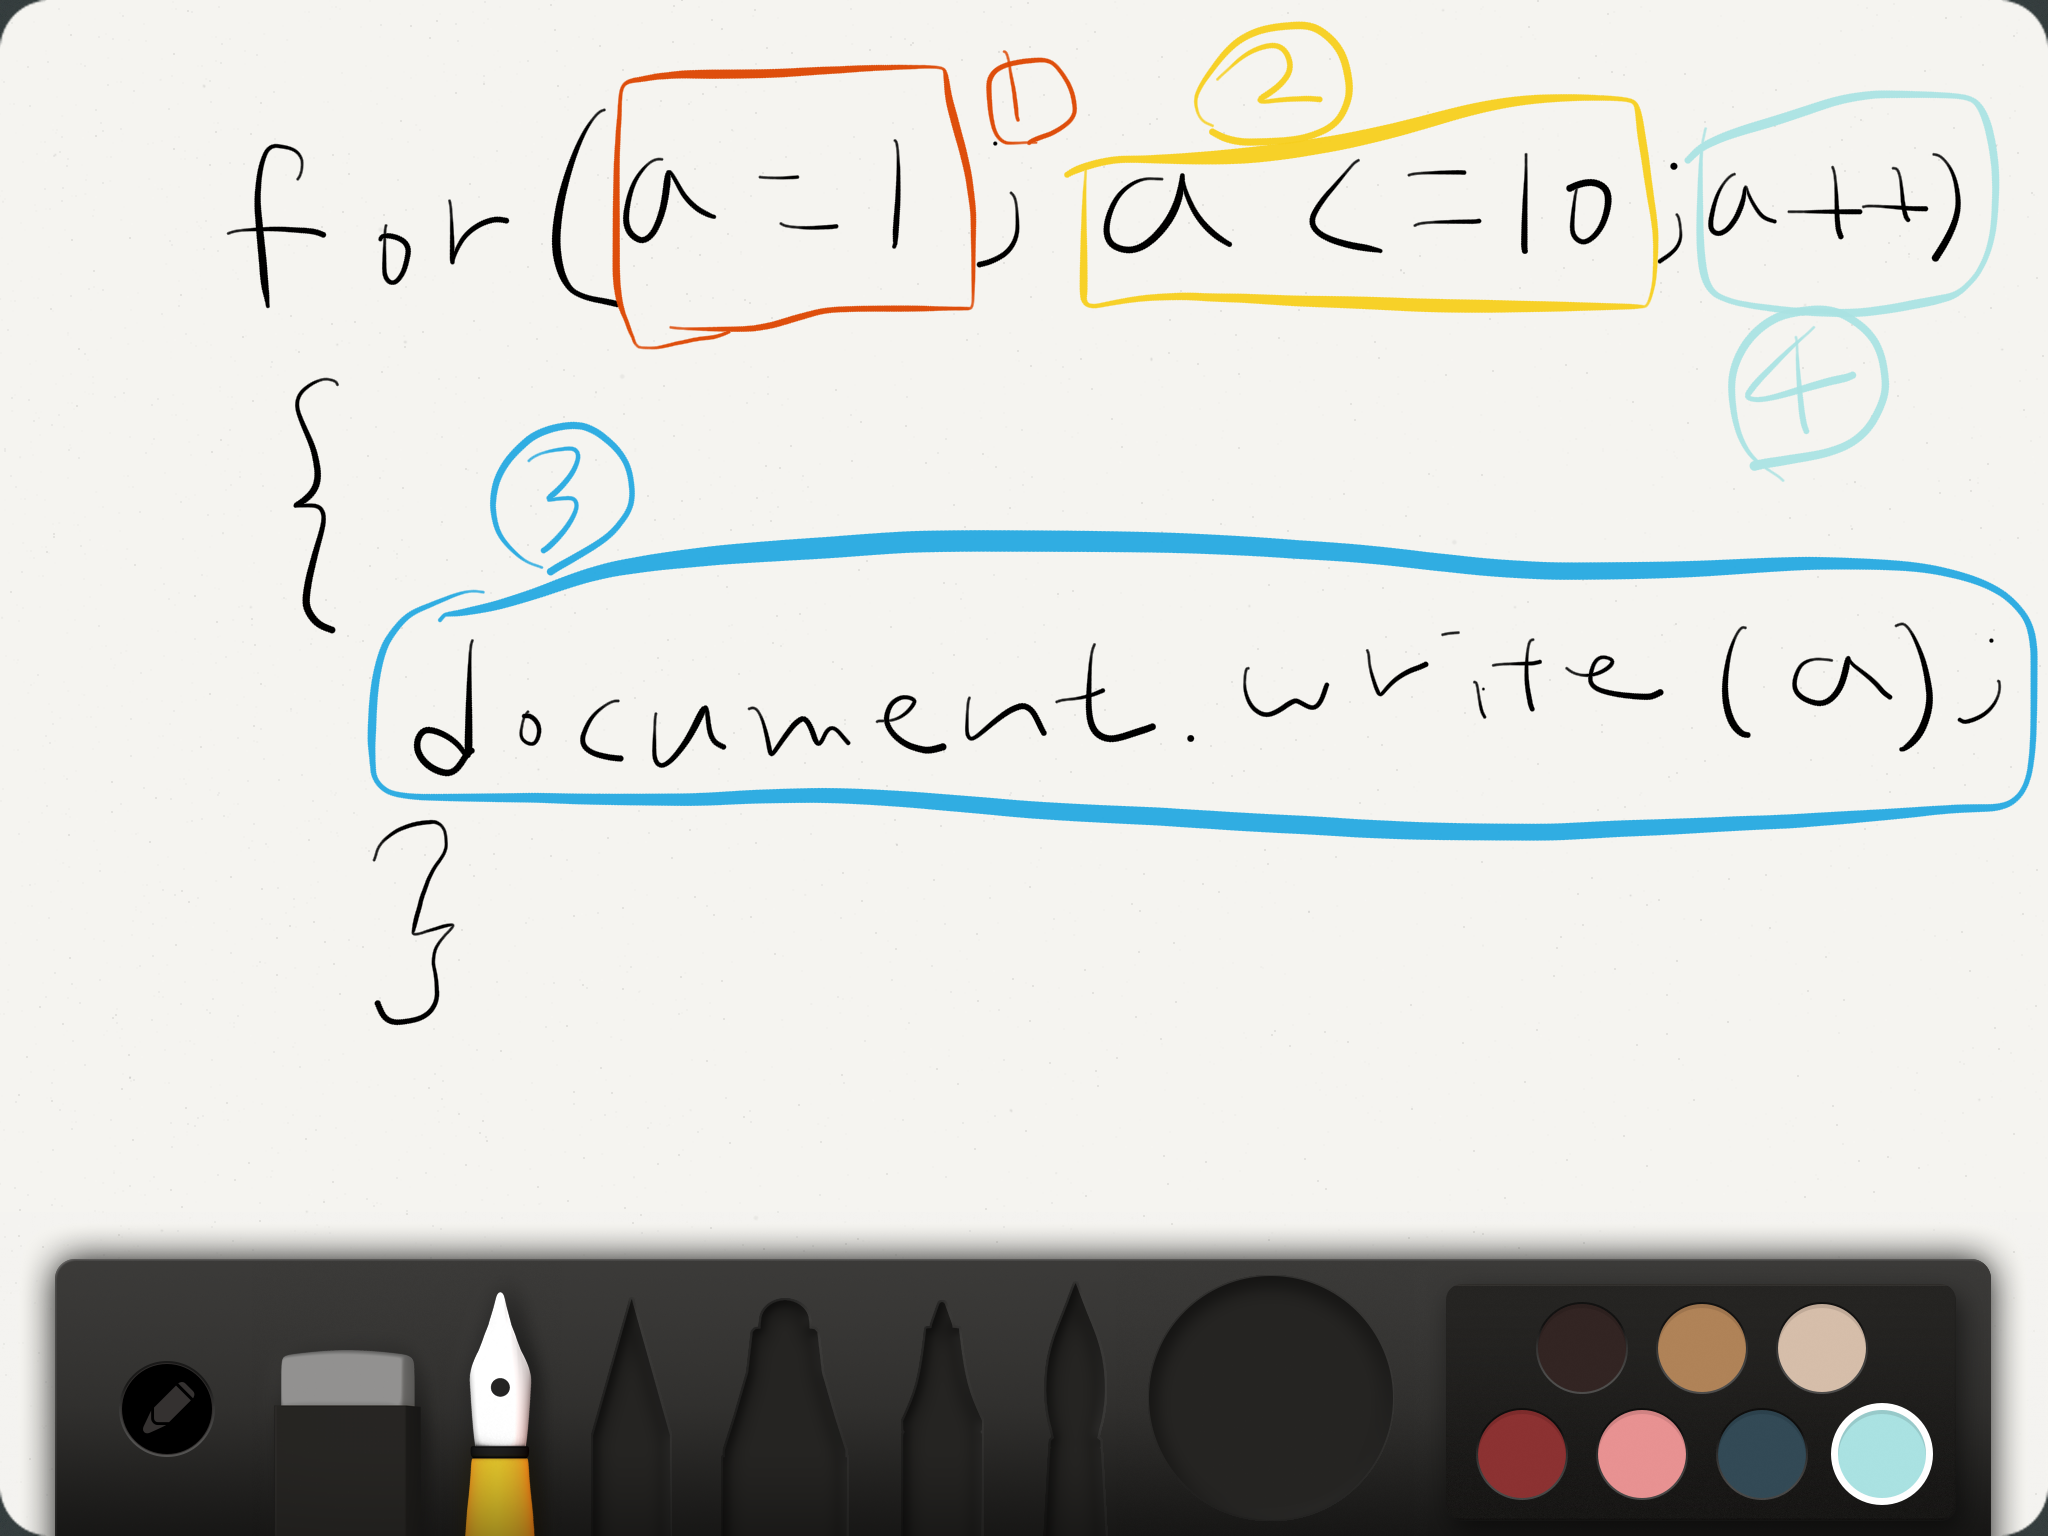 1 2
for (a = 1; a <= 10; a++)
4
{
3
document.write (a);
}